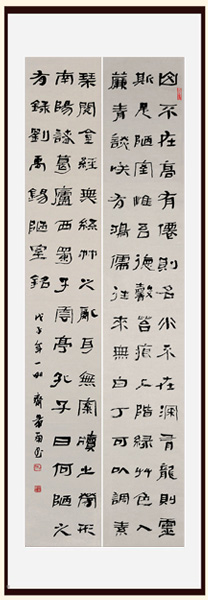 山不在高有僊則名水不在深有龍則靈
斯是陋室惟吾德馨苔痕上階綠艸色入
簾青談咲有鴻儒往來無白丁可以調素
琴閱金經無絲竹之亂耳無案牘之勞形
南陽諸葛廬西蜀子雲亭孔子曰何陋之
有錄劉禹錫陋室銘
戊子年